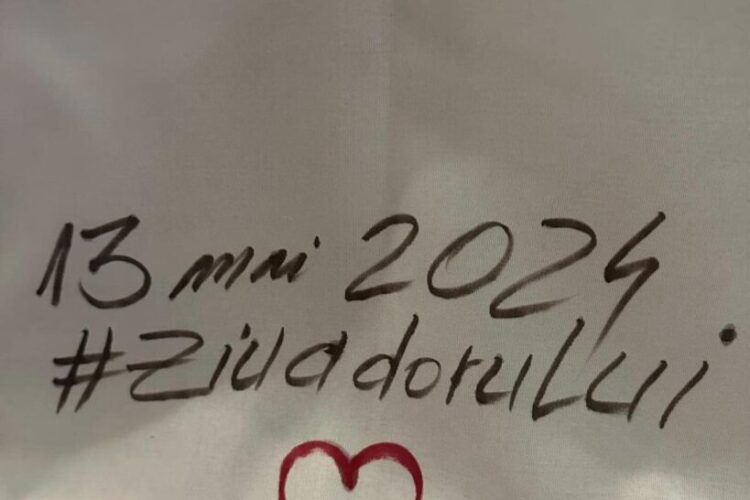 13 mai 2024
#Ziuadorului